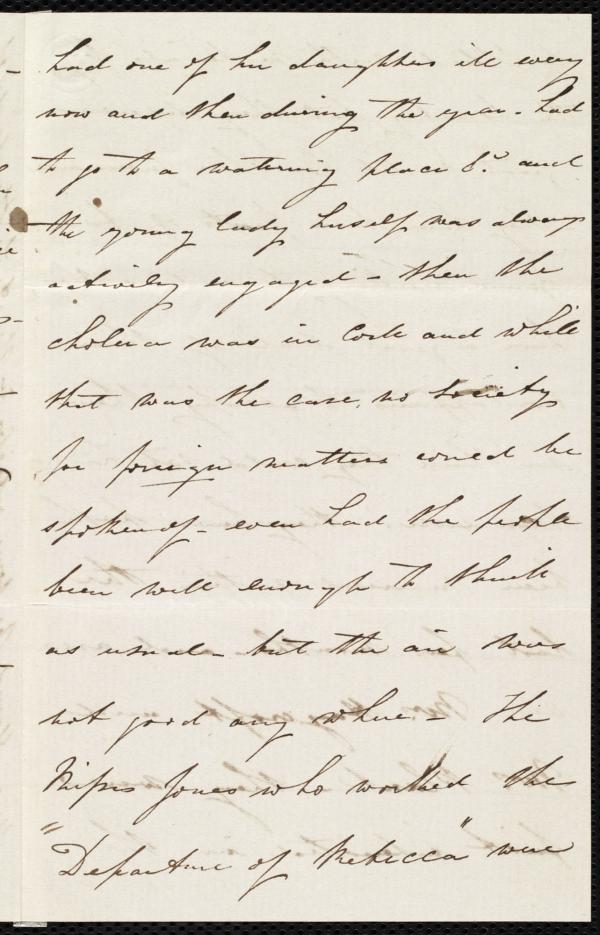 had one of her daughters ill every
now and then during the year. had
to go to a watering place &c. and
the young lady herself was always
actively engaged - then the
cholera was in Cork and while
that was the case, no Society
for foreign matters could be
spoken of - even had the people
been well enough to think
as usual - but the air was
not good any where - The
Misses Jones who worked the
"Departure of Rebecca" were